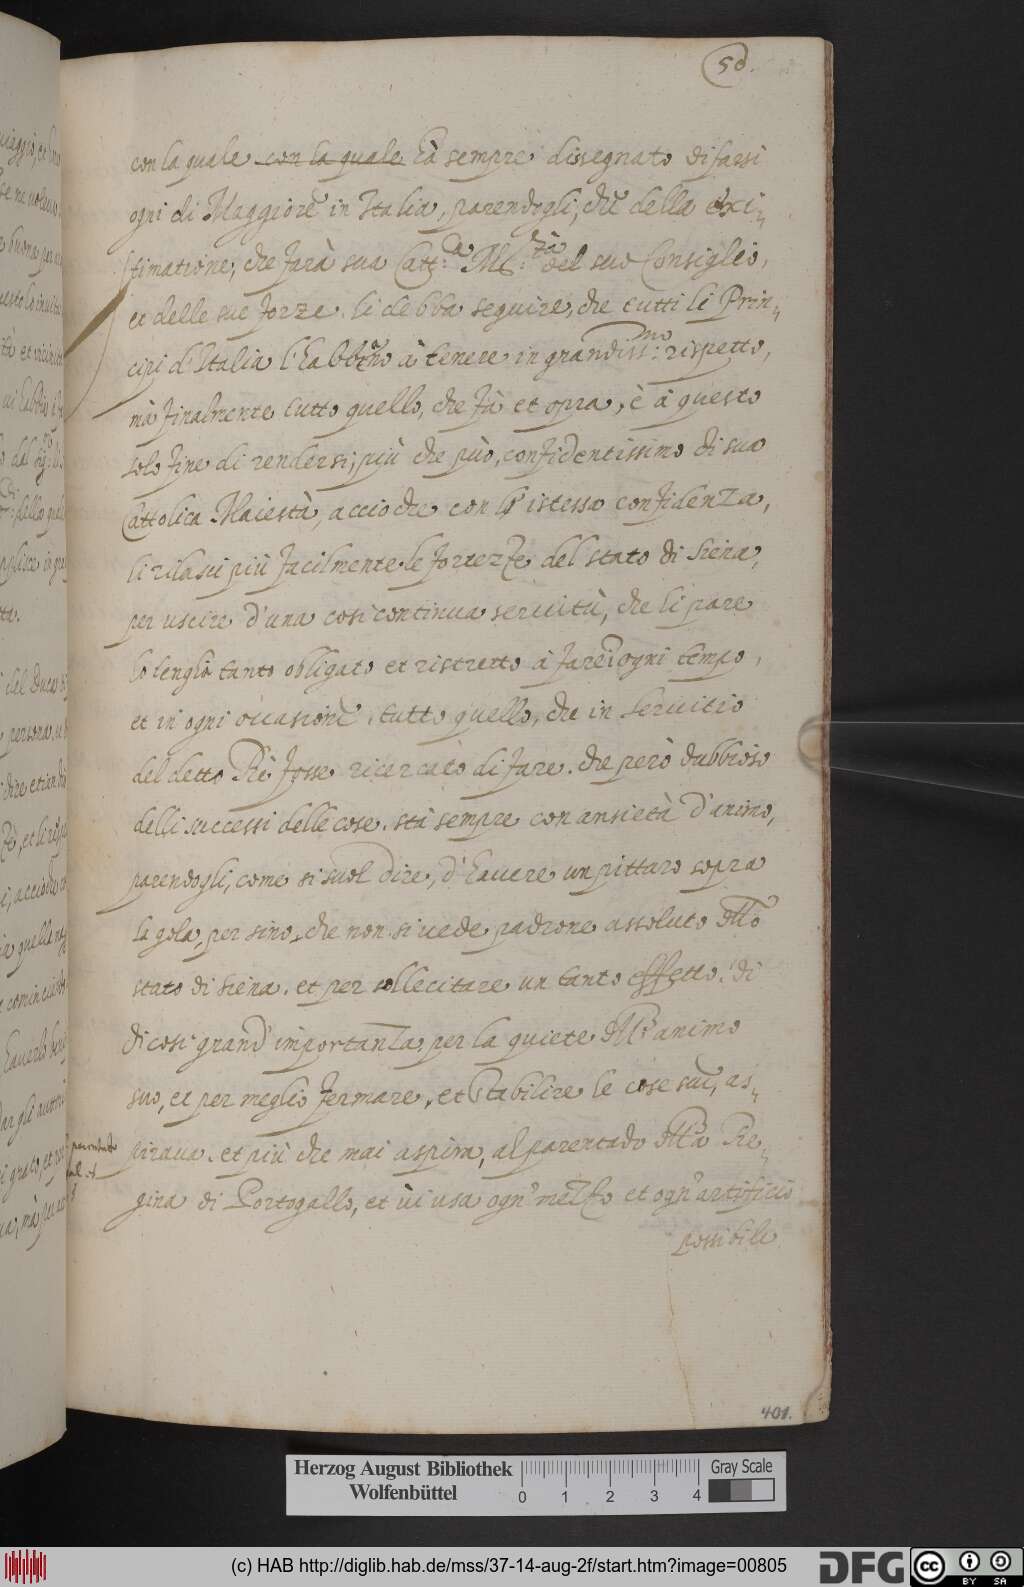 50.
con la quale con la quale hà sempre dissegnato di farsi
ogni dì Maggiore in Italia, parendogli, che della exi-
stimatione, che farà sua Catt:ca M:tà del suo Consiglio,
et delle sue forze. li debba seguire, che tutti li Prin-
cipi d'Italia l'habbino à tenere in grandiss:mo rispetto,
mà finalmente tutto quello, che fà et opra, è à questo
solo fine di rendersi, più che può, confidentissimo di sua
Cattolica Maiestà, acciò che con l' istessa confidenza,
li rilasci più facilmente le fortezze del stato di Siena,
per uscire d'una così continua servitù, che li pare
lo tenghi tanto obligato et ristretto à fare ogni tempo,
et in ogni occasione, tutto quello, che in Servitio
del detto Rè fosse ricercato di fare. che però dubbioso
delli successi delle cose. stà sempre con ansietà d'animo,
parendogli, come si suol dire, d'havere un pittaro sopra
la gola, per sino, che non si vede padrone assoluto dllo
stato di Siena. et per sollecitare un tanto effetto. di
di così grand' importanza, per la quiete dll' animo
suo, et per meglio fermare, et stabilire le cose sue, as-
pirava. et più che mai aspira, al parentado dlla Re-
gina di Portogallo, et ivi usa ogn' mezzo et ogn' artificio
possibile
parentado
401.
Herzog August Bibliothek
Wolfenbüttel
0 1 2 3 4
Gray Scale
(c) HAB http://diglib.hab.de/mss/37-14-aug-2f/start.htm?image=00805
DFG
cc BY SA